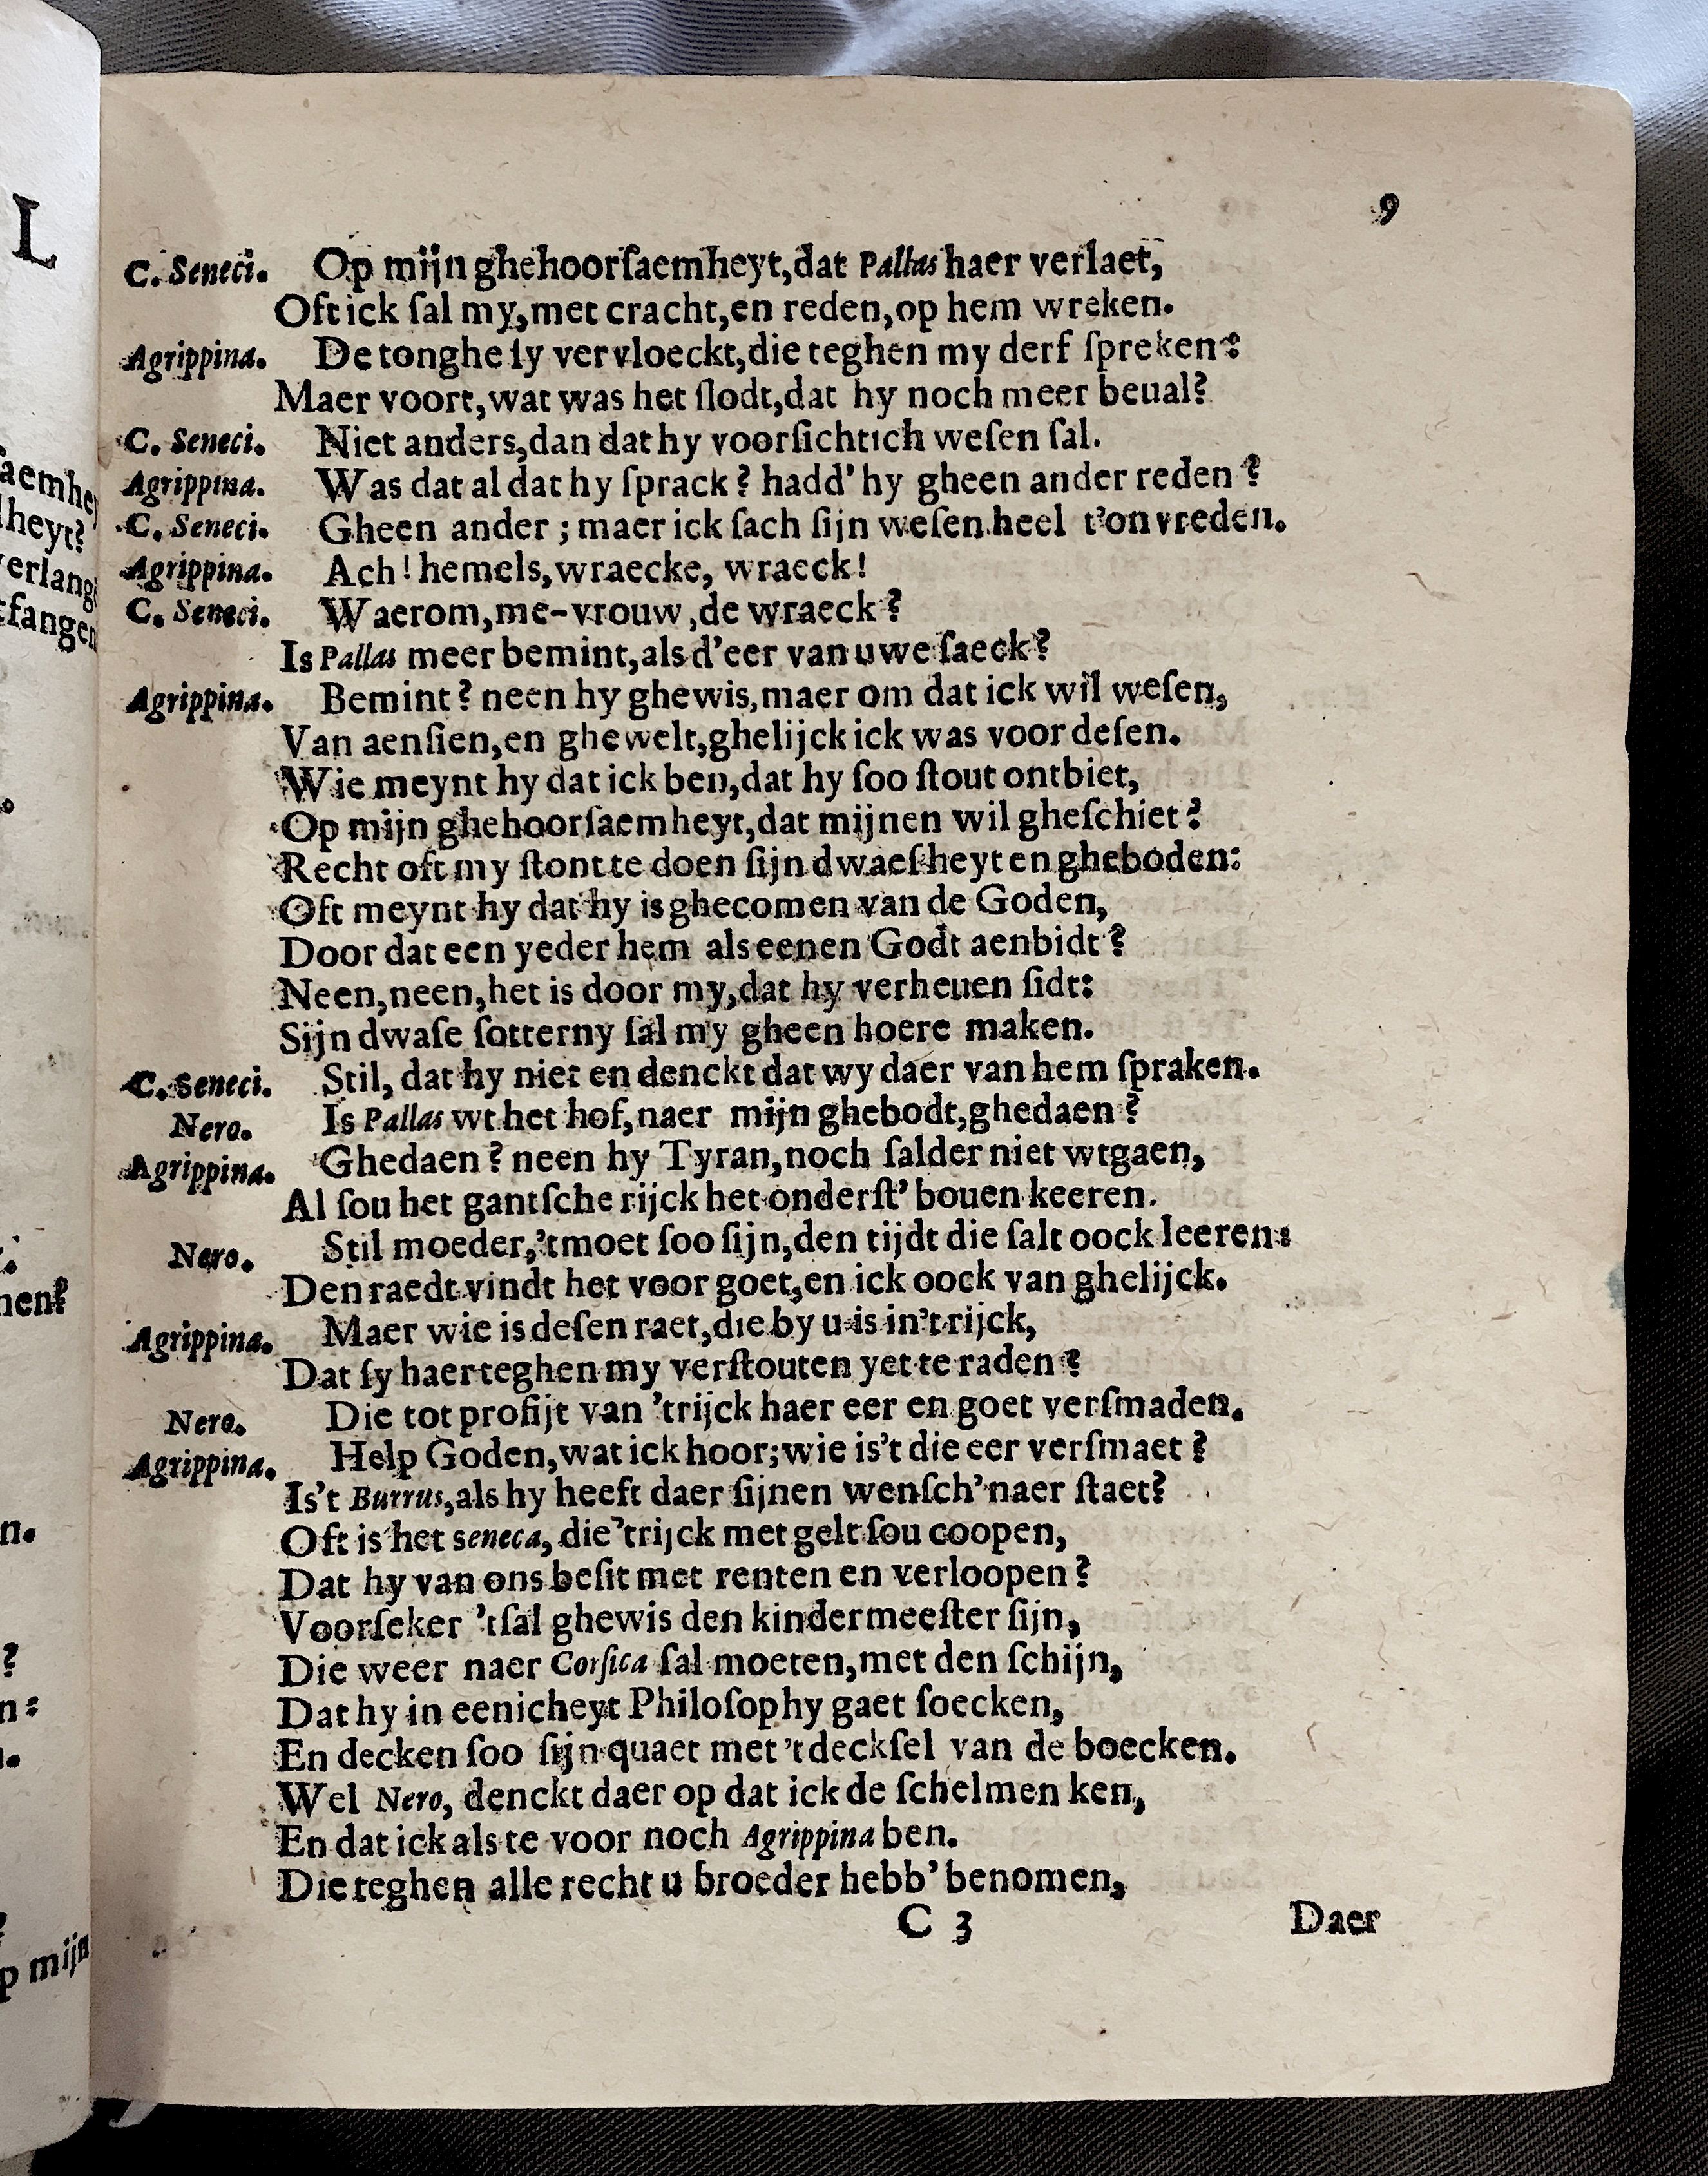 L
9
C. Seneci. Op mijn ghehoorſaemheyt,dat Pallas haer verlaet,
Oft ick ſal my,met cracht,en reden,op hem wreken.
Agrippina. De tonghe ſy vervloeckt,die teghen my derf ſpreken:
Maer voort,wat was het ſlodt,dat hy noch meer beual?
C. Seneci. Niet anders,dan dat hy voorſichtich weſen ſal.
Agrippina. Was dat al dat hy ſprack? hadd' hy gheen ander reden?
C. Seneci. Gheen ander; maer ick ſach ſijn weſen heel t'onvreden.
Agrippina. Ach! hemels,wraecke, wraeck!
C. Seneci. Waerom,me-vrouw,de wraeck?
Is Pallas meer bemint,als d'eer van uwe ſaeck?
Agrippina. Bemint? neen hy ghewis,maer om dat ick wil weſen,
Van aenſien,en ghewelt,ghelijck ick was voor deſen.
Wie meynt hy dat ick ben,dat hy ſoo ſtout ontbiet,
Op mijn ghehoorſaemheyt,dat mijnen wil gheſchiet?
Recht oft my ſtont te doen ſijn dwaeſheyt en gheboden:
Oft meynt hy dat hy is ghecomen van de Goden,
Door dat een yeder hem als eenen Godt aenbidt?
Neen,neen,het is door my,dat hy verheuen ſidt:
Sijn dwaſe ſotterny ſal my gheen hoere maken.
C. Seneci. Stil, dat hy niet en denckt dat wy daer van hem ſpraken.
Nero. Is Pallas wt het hof,naer mijn ghebodt,ghedaen?
Agrippina. Ghedaen? neen hy Tyran,noch ſalder niet wtgaen,
Al ſou het gantſche rijck het onderſt' bouen keeren.
Nero. Stil moeder,'tmoet ſoo ſijn,den tijdt die ſalt oock leeren:
Den raedt vindt het voor goet,en ick oock van ghelijck.
Agrippina. Maer wie is deſen raet,die by u is in't rijck,
Dat ſy haer teghen my verſtouten yet te raden?
Nero. Die tot profijt van 'trijck haer eer en goet verſmaden.
Agrippina. Help Goden,wat ick hoor;wie is't die eer verſmaet?
Is't Burrus,als hy heeft daer ſijnen wenſch' naer ſtaet?
Oft is het Seneca, die 'trijck met gelt ſou coopen,
Dat hy van ons beſit met renten en verloopen?
Voorſeker 'tſal ghewis den kindermeeſter ſijn,
Die weer naer Corſica ſal moeten,met den ſchijn,
Dat hy in eenicheyt Philoſophy gaet ſoecken,
En decken ſoo ſijn quaet met 't deckſel van de boecken.
Wel Nero, denckt daer op dat ick de ſchelmen ken,
En dat ick als te voor noch Agrippina ben.
Die teghen alle recht u broeder hebb' benomen,
C 3
Daer